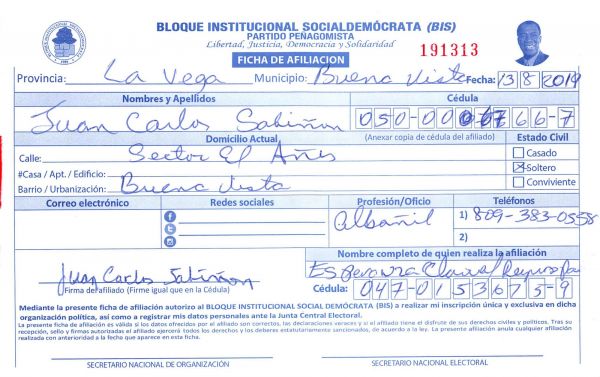 BLOQUE INSTITUCIONAL SOCIALDEMÓCRATA (BIS)
PARTIDO PEÑAGOMISTA
Libertad, Justicia, Democracia y Solidaridad
191313
FICHA DE AFILIACION
Provincia: La Vega Municipio: Buena Vista Fecha: 13 8 2019
Nombres y Apellidos Cédula
Juan Carlos Sabiñon 050-00 66-7
Domicilio Actual (Anexar copia de cédula del afiliado) Estado Civil
Calle: Sector El Casado
#Casa / Apt. / Edificio: Soltero
Barrio / Urbanización: Buena Vista Conviviente
Correo electrónico Redes sociales Profesión/Oficio Teléfonos
Albañil 1) 809-383-0558
2)
Nombre completo de quien realiza la afiliación
Juan Carlos Sabiñon Esperanza
Firma de afiliado (Firme igual que en la Cédula) Cédula: 047-0153673-9
Mediante la presente ficha de afiliación autorizo al BLOQUE INSTITUCIONAL SOCIAL DEMÓCRATA (BIS) a realizar mi inscripción única y exclusiva en dicha
organización política, así como a registrar mis datos personales ante la Junta Central Electoral.
La presente ficha de afiliación es válida si los datos ofrecidos por el afiliado son correctos, las declaraciones veraces y si el afiliado tiene el disfrute de sus derechos civiles y políticos. Tras su
recepción, sello y firmas autorizadas el afiliado ejercerá todos los derechos y los deberes estatutariamente sancionados, de acuerdo a la ley. La presente afiliación anula cualquier afiliación
realizada con anterioridad a la fecha que aparece en esta ficha.
SECRETARIO NACIONAL DE ORGANIZACIÓN SECRETARIO NACIONAL ELECTORAL